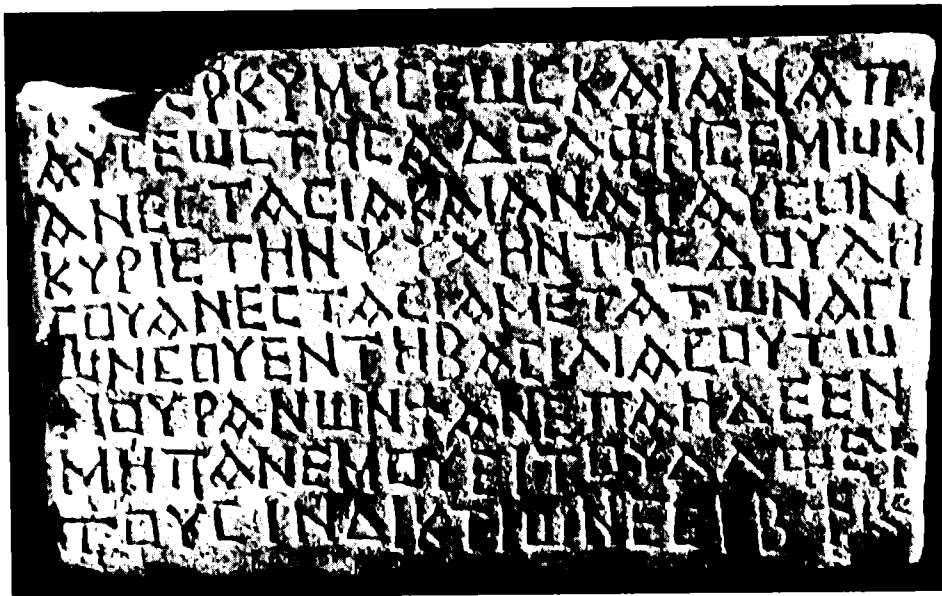 ΡΚΥΜΥΣΕШΣΚΑΙΑΝΑΠ
ΑΥΣΕШΣΤΗΣΑΔΕΛΦΗΣΕΜΙШΝ
ΑΝΕΣΤΑΣΙΑΚΑΙΑΝΑΠΑΥΣΕΟΝ
ΚΥΡΙΕΤΗΝΨΥΧΗΝΤΗΣΔΟΥΛΗ
ΣΟΥΑΝΕΣΤΑΣΙΑΜΕΤΑΤШΝΑΓΙ
ШΝΣΟΥΕΝΤΗΒΑΣΙΛΙΑΣΟΥΤШ
ΙΟΥΡΑΝШΝ†ΑΝΕΠΑΗΔΕΕΝ
ΜΗΠΑΝΕΜΟΥΕΙΤΟΥ
ΤΟΥΣΙΝΔΙΚΤΙШΝΕΣΙΒ